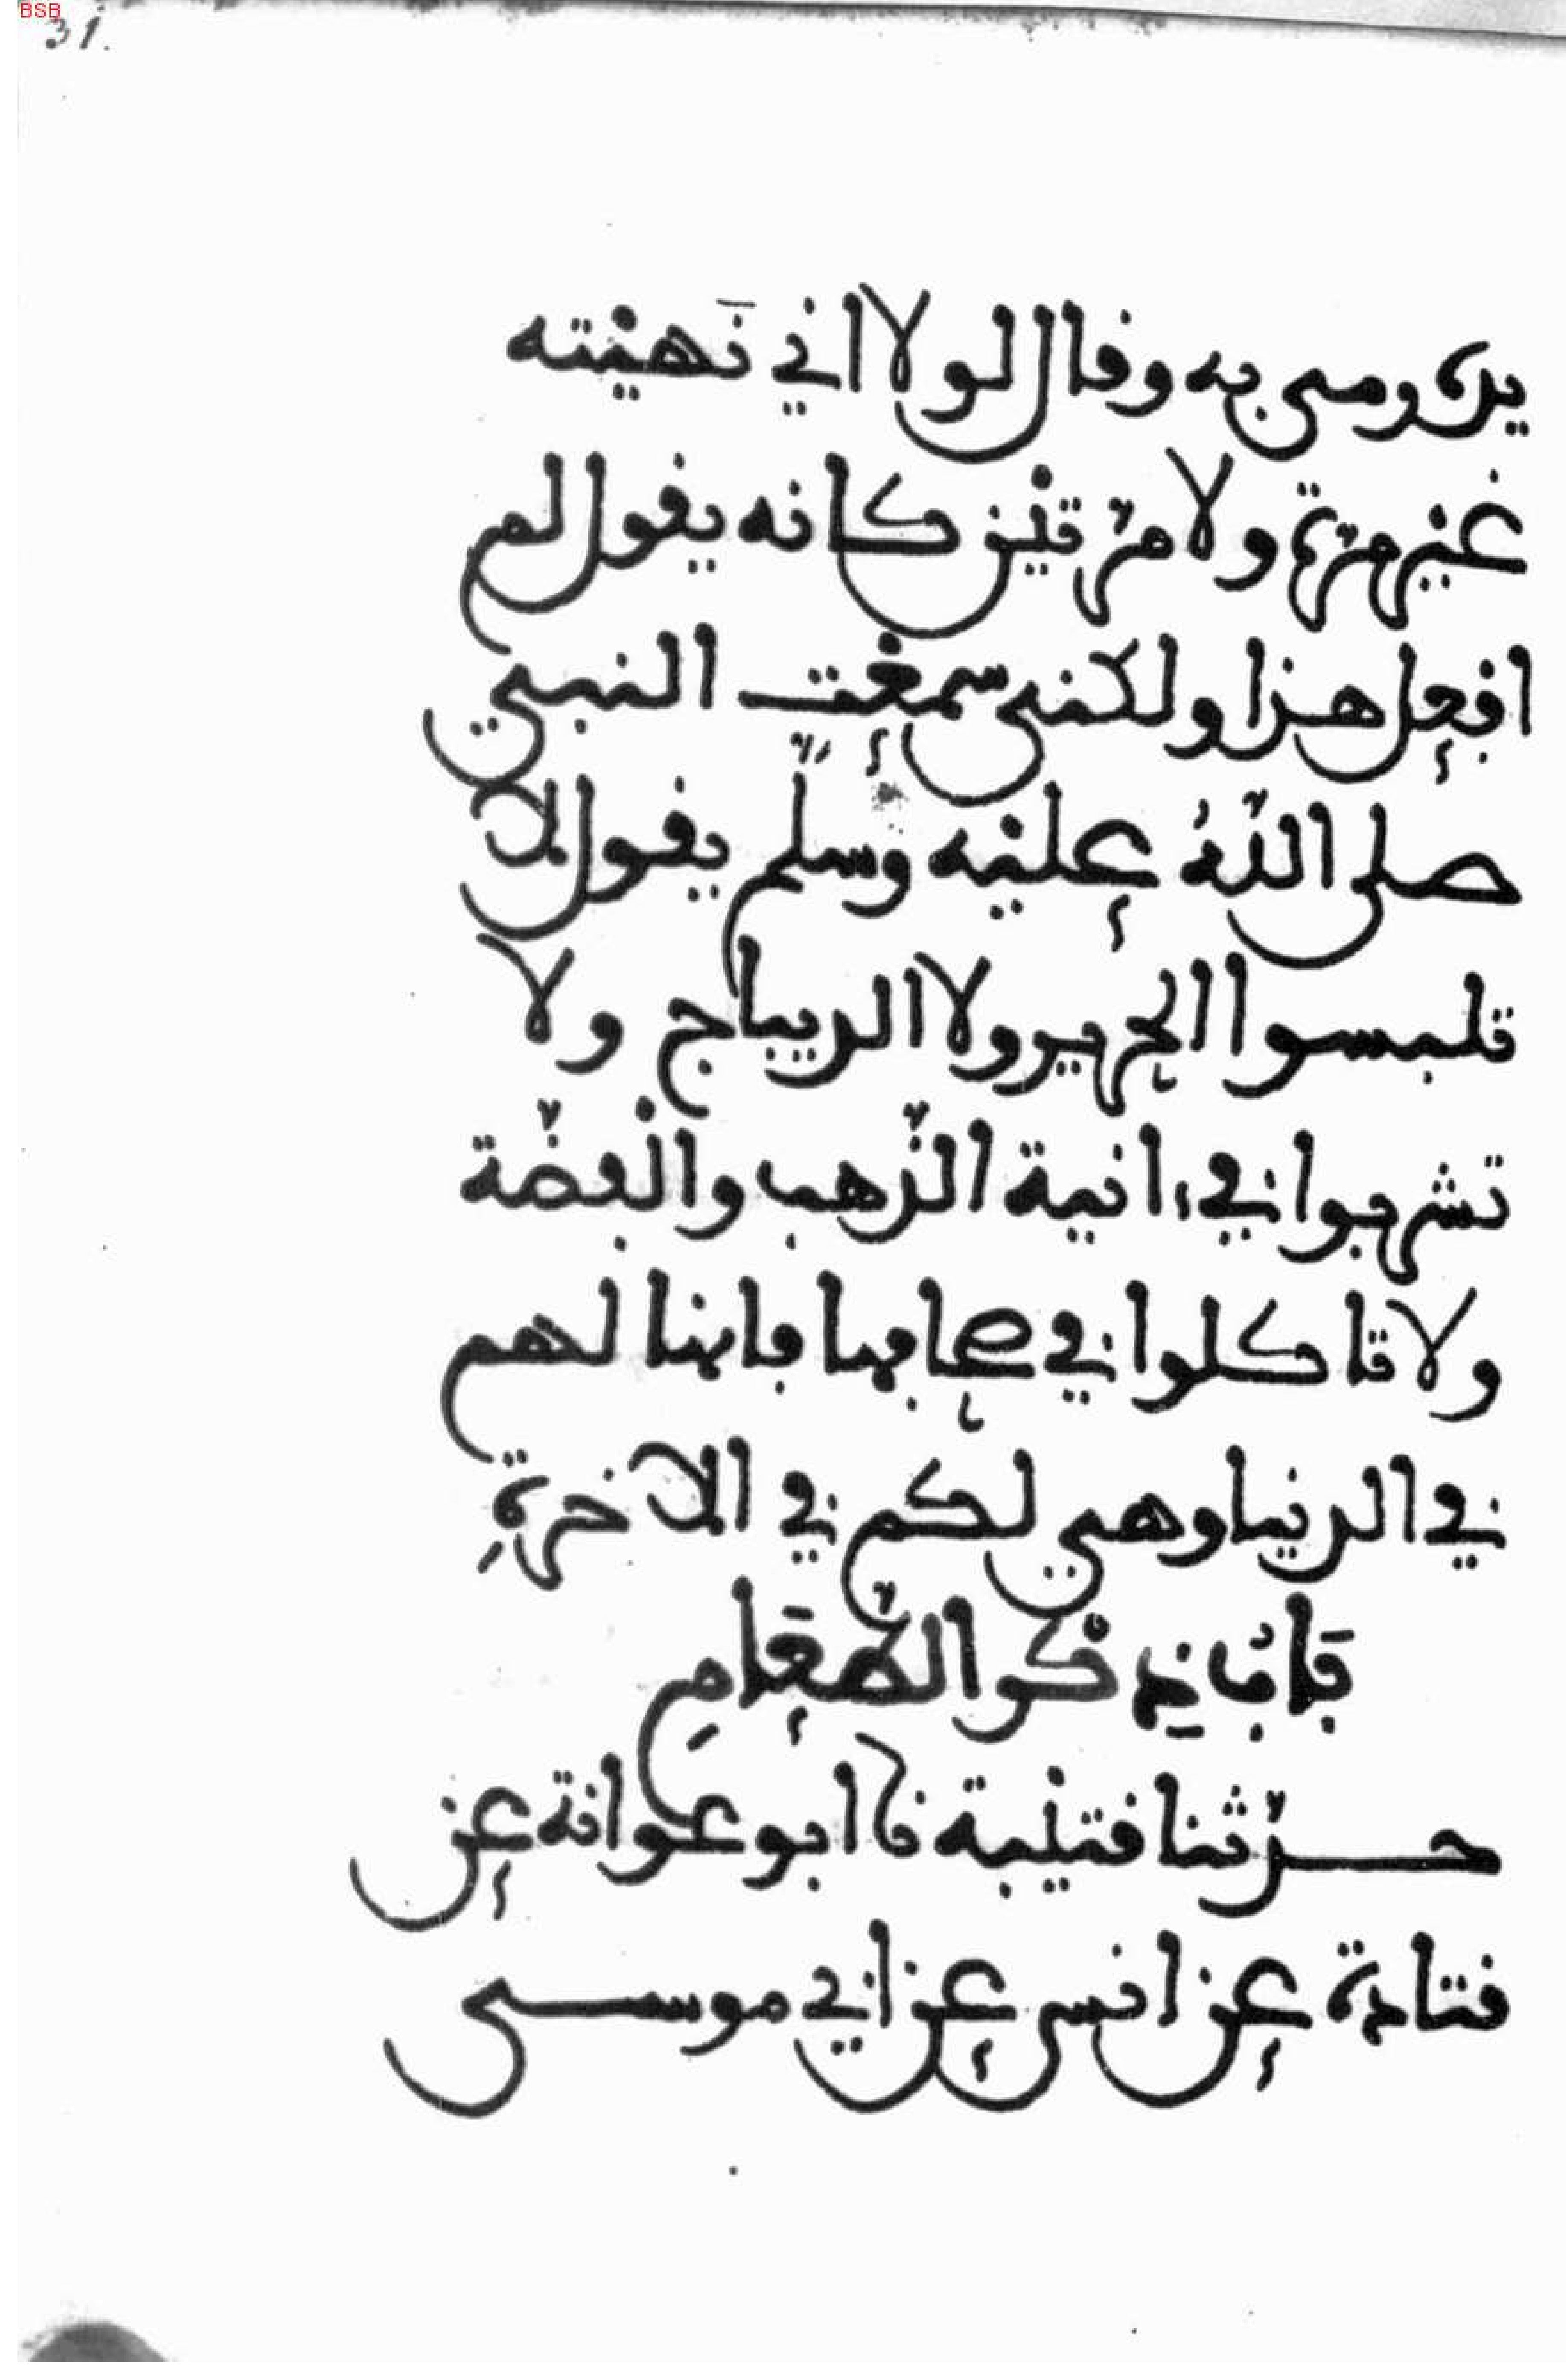 BSB
31.
يده ورمى به وقال لولا اني نَهيْته
غيْر مرّة ولا مرّتيْن كانه يقول لم
افعل هذا ولكنى سمعْت النبي
صلى اللّهُ عليْه وسلّم يقول لا
تلبسوا الحرير ولا الديباج ولا
تشربوا في ءانية الذّهب والْفضّة
ولا تاكلوا في صحافها فانها لهم
في الدنيا وهي لكم في الآخرةِ
بَابُ ذِكْر الطّعَامِ
حدّثنا قتيْبة نا ابو عوانة عن
قتادة عن انس عن ابي موسى